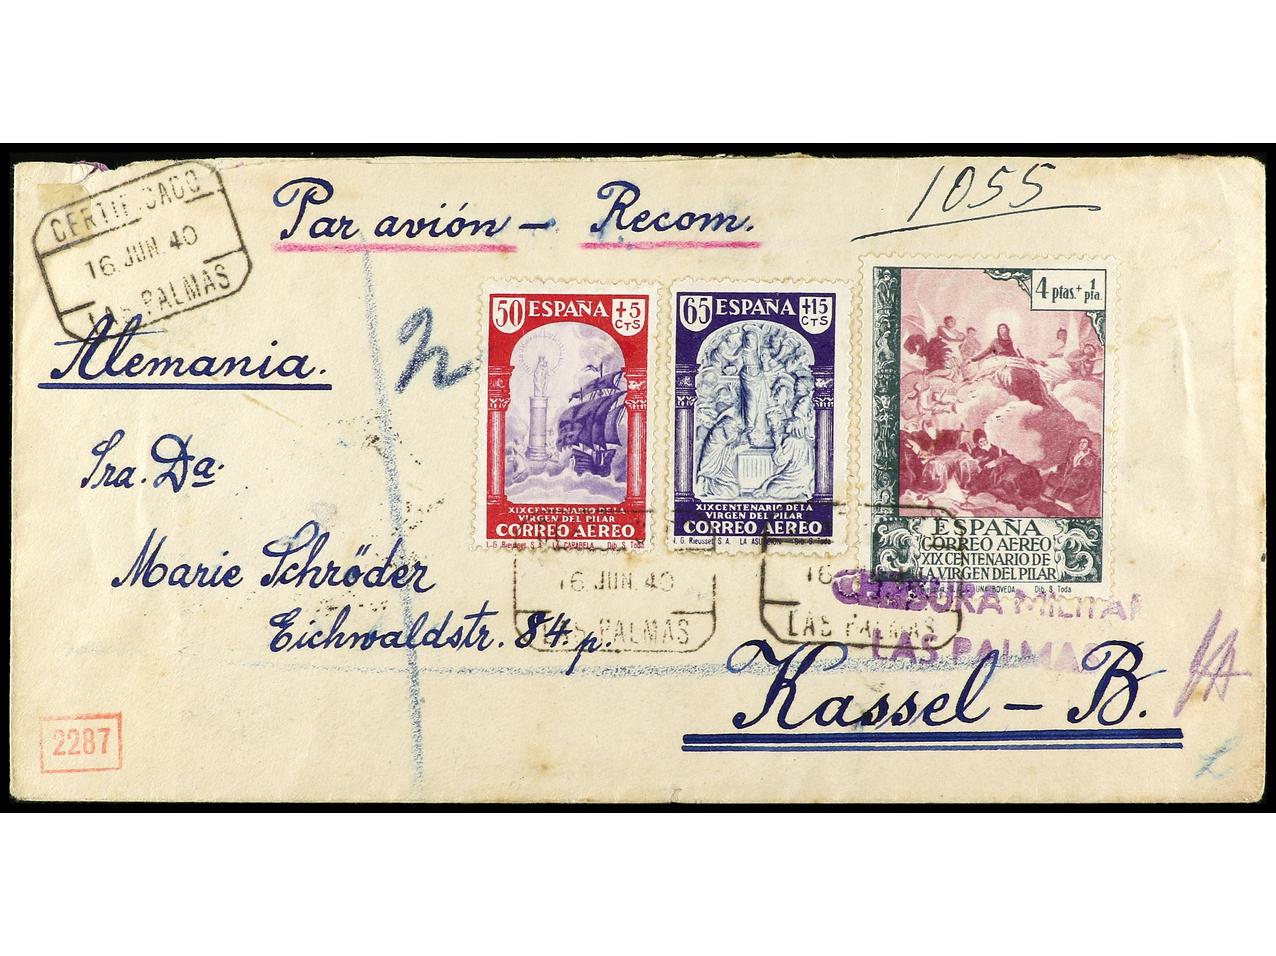 CERTIFICADO
16 JUN. 40
LAS PALMAS
Par avión – Recom.
1055
Alemania.
50 ESPAÑA +5 CTS
XIX CENTENARIO DE LA
VIRGEN DEL PILAR
CORREO AEREO
I. G. Rieusset S. A. LA CARABELA Dib. S. Toda
65 ESPAÑA +15 CTS
XIX CENTENARIO DE LA
VIRGEN DEL PILAR
CORREO AEREO
I. G. Rieusset S. A. LA ASUNCION Dib. S. Toda
4 ptas. + 1 pta.
ESPAÑA
CORREO AEREO
XIX CENTENARIO DE
LA VIRGEN DEL PILAR
UNA BOVEDA Dib. S. Toda
Sra. Da.
Marie Schröder
Eichwaldstr. 84. p.
16 JUN. 40
LAS PALMAS
16
LAS PALMAS
CENSURA MILITAR
LAS PALMAS
Kassel – B.
2287